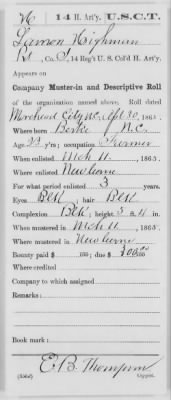 H | 14 H. Art'y. | U.S.C.T.
Lamon Highman
Pvt, Co. I, 14 Reg't U. S. Col'd H. Art'y.
Appears on
Company Muster-in and Descriptive Roll
of the organization named above. Roll dated
Morehead City N.C., Apl 30, 1865.
Where born Bertie N.C.
Age 23 y'rs; occupation Farmer
When enlisted Mch 11, 1865.
Where enlisted Newberne
For what period enlisted 3 years.
Eyes Blk; hair Blk
Complexion Blk; height 5 ft. in.
When mustered in Mch 11, 1865.
Where mustered in Newberne
Bounty paid $ 100; due $ 300.00
Where credited
Company to which assigned
Remarks:
Book mark:
E. B. Thompson
Copyist.